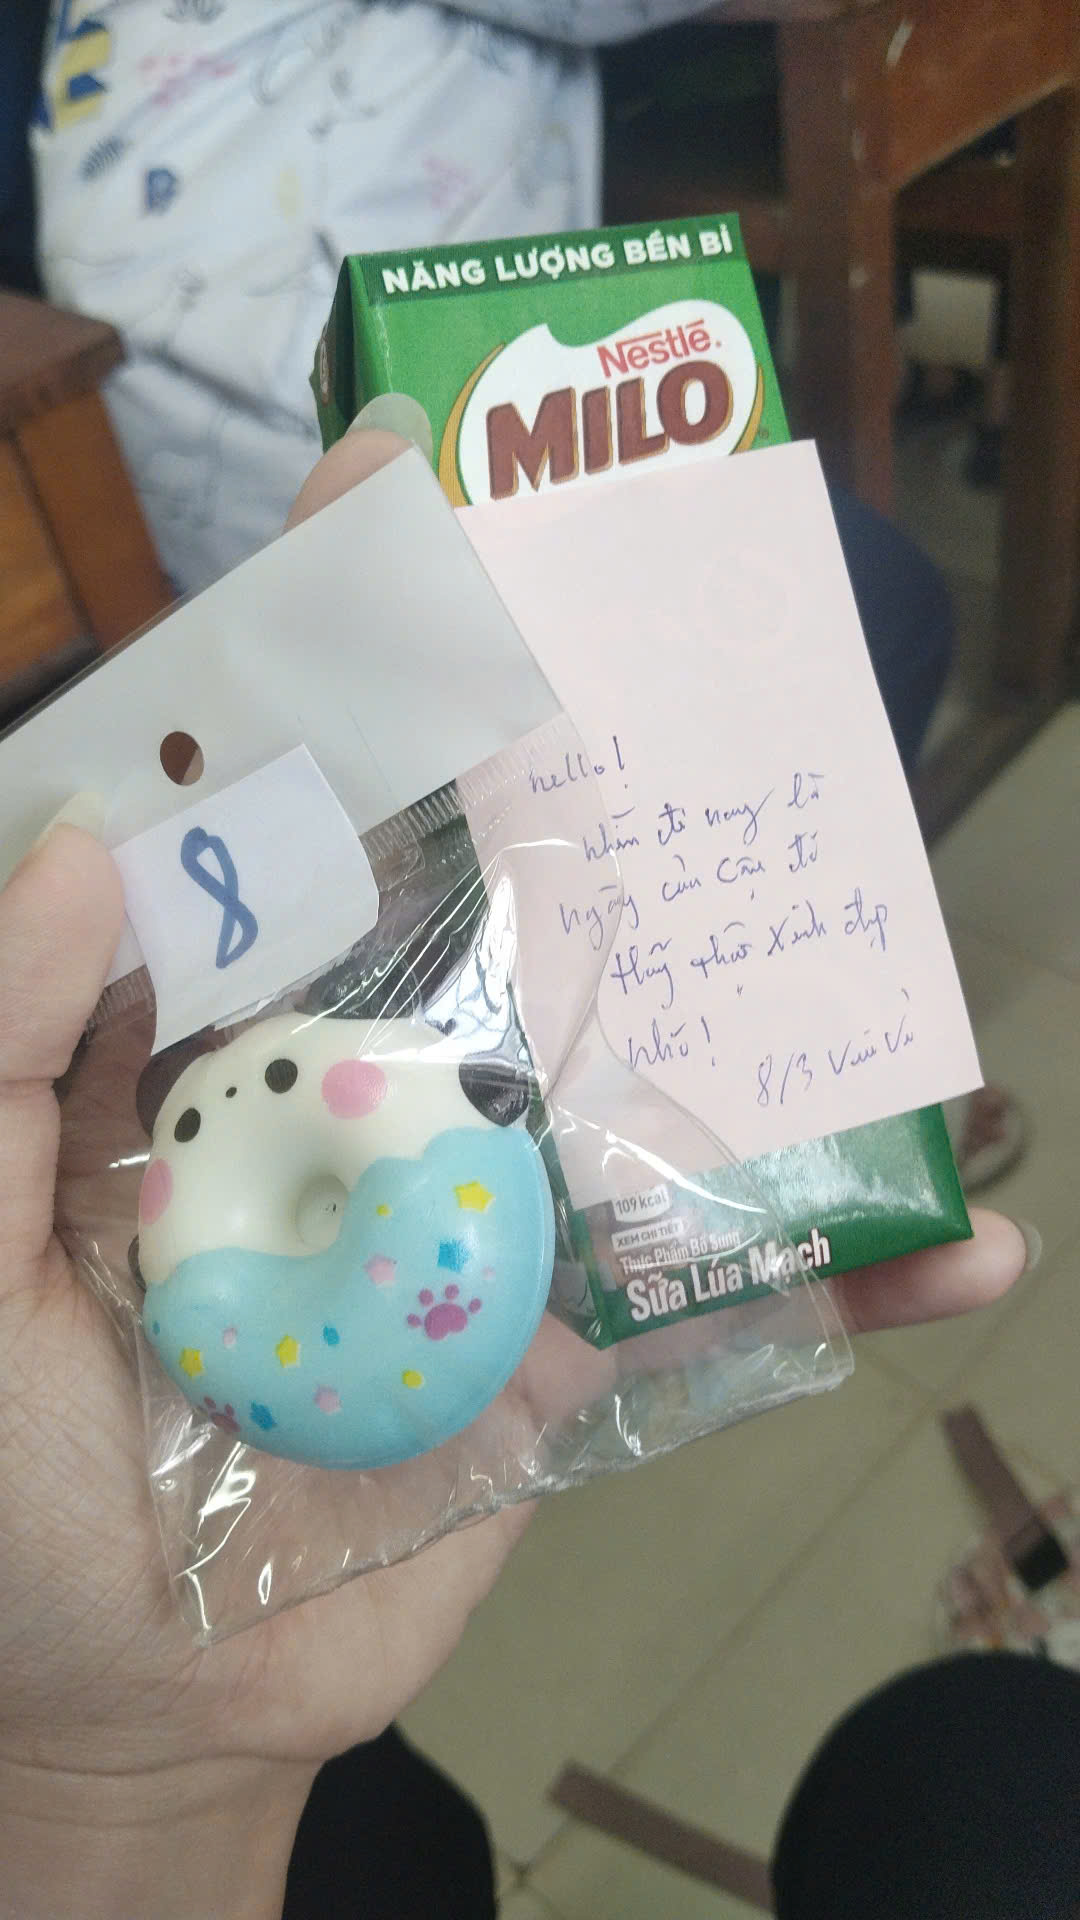 NĂNG LƯỢNG BỀN BỈ
Nestlé.
MILO
8
hello!
nay là
ngày của cậu đó
Hãy thật xinh đẹp
nhé!
8/3 Vui Vẻ
109 kcal
XEM CHI TIẾT
Thực Phẩm Bổ Sung
Sữa Lúa Mạch